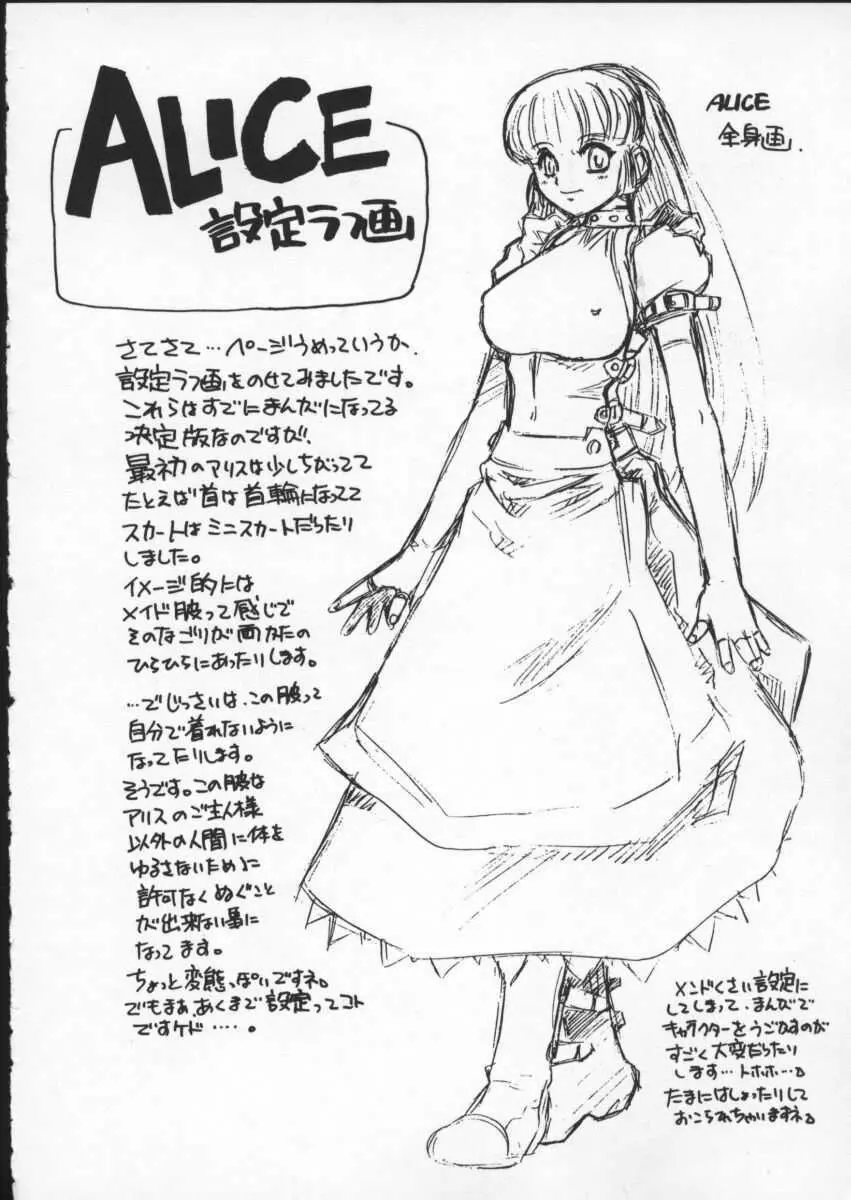 ALICE
設定ラフ画
ALICE
全身画.
さてさて…ページうめっていうか、
設定ラフ画をのせてみましたです。
これらはすでにまんがになってる
決定版なのですが、
最初のアリスは少しちがってて
たとえば首は首輪になってて
スカートはミニスカートだったり
しました。
イメージ的には
メイド服って感じで
そのなごりが両かたの
ひらひらにあったりします。
…でじっさいは、この服って
自分で着れないように
なってたりします。
そうです。この服は
アリスのご主人様
以外の人間に体を
ゆるさないために
許可なくぬぐこと
が出来ない量に
なってます。
ちょっと変態っぽいですネ。
でもまあ、あくまで設定ってコト
ですケド……。
メンドくさい設定に
してしまって、まんがで
キャラクターをうごかすのが
すごく大変だったり
します…トホホ…。
たまにはしょったりして
おこられちゃいますネ。